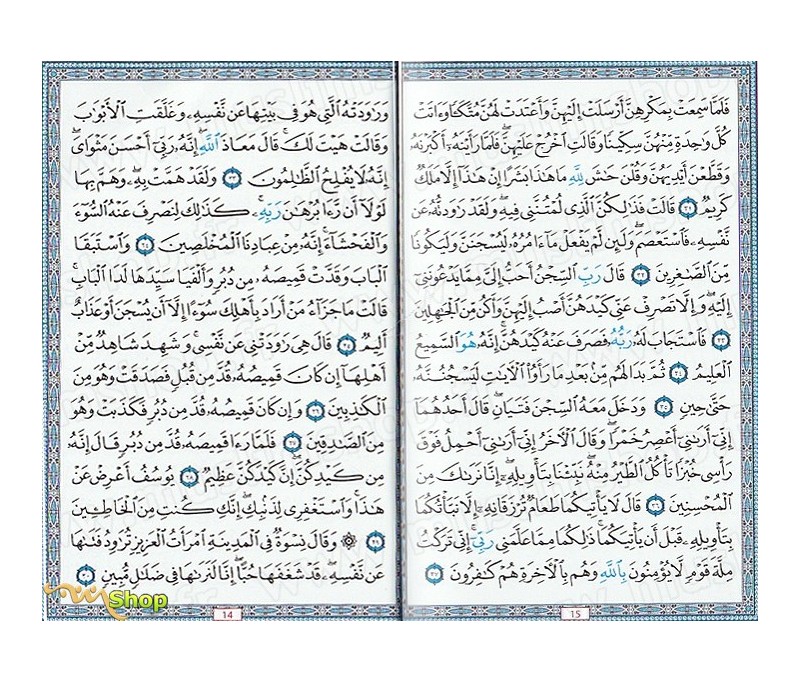 وَرَٰوَدَتْهُ ٱلَّتِى هُوَ فِى بَيْتِهَا عَن نَّفْسِهِۦ وَغَلَّقَتِ ٱلْأَبْوَٰبَ
وَقَالَتْ هَيْتَ لَكَ ۚ قَالَ مَعَاذَ ٱللَّهِ ۖ إِنَّهُۥ رَبِّىٓ أَحْسَنَ مَثْوَاىَ ۖ
إِنَّهُۥ لَا يُفْلِحُ ٱلظَّٰلِمُونَ ٢٣ وَلَقَدْ هَمَّتْ بِهِۦ ۖ وَهَمَّ بِهَا
لَوْلَآ أَن رَّءَا بُرْهَٰنَ رَبِّهِۦ ۚ كَذَٰلِكَ لِنَصْرِفَ عَنْهُ ٱلسُّوٓءَ
وَٱلْفَحْشَآءَ ۚ إِنَّهُۥ مِنْ عِبَادِنَا ٱلْمُخْلَصِينَ ٢٤ وَٱسْتَبَقَا
ٱلْبَابَ وَقَدَّتْ قَمِيصَهُۥ مِن دُبُرٍ وَأَلْفَيَا سَيِّدَهَا لَدَا ٱلْبَابِ ۚ
قَالَتْ مَا جَزَآءُ مَنْ أَرَادَ بِأَهْلِكَ سُوٓءًا إِلَّآ أَن يُسْجَنَ أَوْ عَذَابٌ
أَلِيمٌ ٢٥ قَالَ هِىَ رَٰوَدَتْنِى عَن نَّفْسِى ۚ وَشَهِدَ شَاهِدٌ مِّنْ
أَهْلِهَآ إِن كَانَ قَمِيصُهُۥ قُدَّ مِن قُبُلٍ فَصَدَقَتْ وَهُوَ مِنَ
ٱلْكَٰذِبِينَ ٢٦ وَإِن كَانَ قَمِيصُهُۥ قُدَّ مِن دُبُرٍ فَكَذَبَتْ وَهُوَ
مِنَ ٱلصَّٰدِقِينَ ٢٧ فَلَمَّا رَءَا قَمِيصَهُۥ قُدَّ مِن دُبُرٍ قَالَ إِنَّهُۥ
مِن كَيْدِكُنَّ ۖ إِنَّ كَيْدَكُنَّ عَظِيمٌ ٢٨ يُوسُفُ أَعْرِضْ عَنْ
هَٰذَا ۚ وَٱسْتَغْفِرِى لِذَنۢبِكِ ۖ إِنَّكِ كُنتِ مِنَ ٱلْخَاطِـِٔينَ
٢٩ ۞ وَقَالَ نِسْوَةٌ فِى ٱلْمَدِينَةِ ٱمْرَأَتُ ٱلْعَزِيزِ تُرَٰوِدُ فَتَىٰهَا
عَن نَّفْسِهِۦ ۖ قَدْ شَغَفَهَا حُبًّا ۖ إِنَّا لَنَرَىٰهَا فِى ضَلَٰلٍ مُّبِينٍ ٣٠
14
فَلَمَّا سَمِعَتْ بِمَكْرِهِنَّ أَرْسَلَتْ إِلَيْهِنَّ وَأَعْتَدَتْ لَهُنَّ مُتَّكَـًٔا وَءَاتَتْ
كُلَّ وَٰحِدَةٍ مِّنْهُنَّ سِكِّينًا وَقَالَتِ ٱخْرُجْ عَلَيْهِنَّ ۖ فَلَمَّا رَأَيْنَهُۥٓ أَكْبَرْنَهُۥ
وَقَطَّعْنَ أَيْدِيَهُنَّ وَقُلْنَ حَٰشَ لِلَّهِ مَا هَٰذَا بَشَرًا إِنْ هَٰذَآ إِلَّا مَلَكٌ
كَرِيمٌ ٣١ قَالَتْ فَذَٰلِكُنَّ ٱلَّذِى لُمْتُنَّنِى فِيهِ ۖ وَلَقَدْ رَٰوَدتُّهُۥ عَن
نَّفْسِهِۦ فَٱسْتَعْصَمَ ۖ وَلَئِن لَّمْ يَفْعَلْ مَآ ءَامُرُهُۥ لَيُسْجَنَنَّ وَلَيَكُونًا
مِّنَ ٱلصَّٰغِرِينَ ٣٢ قَالَ رَبِّ ٱلسِّجْنُ أَحَبُّ إِلَىَّ مِمَّا يَدْعُونَنِىٓ
إِلَيْهِ ۖ وَإِلَّا تَصْرِفْ عَنِّى كَيْدَهُنَّ أَصْبُ إِلَيْهِنَّ وَأَكُن مِّنَ ٱلْجَٰهِلِينَ
٣٣ فَٱسْتَجَابَ لَهُۥ رَبُّهُۥ فَصَرَفَ عَنْهُ كَيْدَهُنَّ ۚ إِنَّهُۥ هُوَ ٱلسَّمِيعُ
ٱلْعَلِيمُ ٣٤ ثُمَّ بَدَا لَهُم مِّنۢ بَعْدِ مَا رَأَوُا۟ ٱلْـَٔايَٰتِ لَيَسْجُنُنَّهُۥ
حَتَّىٰ حِينٍ ٣٥ وَدَخَلَ مَعَهُ ٱلسِّجْنَ فَتَيَانِ ۖ قَالَ أَحَدُهُمَآ
إِنِّىٓ أَرَىٰنِىٓ أَعْصِرُ خَمْرًا ۖ وَقَالَ ٱلْـَٔاخَرُ إِنِّىٓ أَرَىٰنِىٓ أَحْمِلُ فَوْقَ
رَأْسِى خُبْزًا تَأْكُلُ ٱلطَّيْرُ مِنْهُ ۖ نَبِّئْنَا بِتَأْوِيلِهِۦٓ ۖ إِنَّا نَرَىٰكَ مِنَ
ٱلْمُحْسِنِينَ ٣٦ قَالَ لَا يَأْتِيكُمَا طَعَامٌ تُرْزَقَانِهِۦٓ إِلَّا نَبَّأْتُكُمَا
بِتَأْوِيلِهِۦ قَبْلَ أَن يَأْتِيَكُمَا ۚ ذَٰلِكُمَا مِمَّا عَلَّمَنِى رَبِّىٓ ۚ إِنِّى تَرَكْتُ
مِلَّةَ قَوْمٍ لَّا يُؤْمِنُونَ بِٱللَّهِ وَهُم بِٱلْـَٔاخِرَةِ هُمْ كَٰفِرُونَ ٣٧
15
Shop